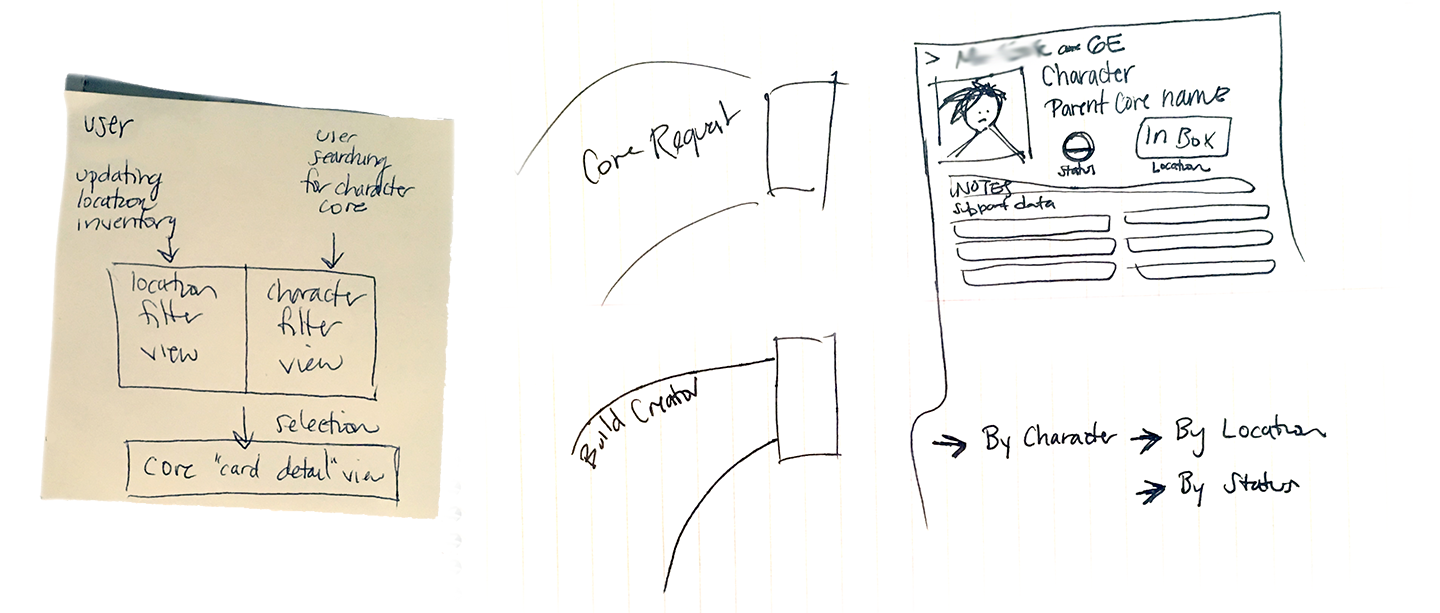 user
updating
location
inventory
user
searching
for character
core
location
filter
view
character
filter
view
selection
core "card detail" view
Core Request
Build Creator
> GE
Character
Parent Core name
In Box
Status
Location
NOTES
support data
→ By Character → By Location
→ By Status